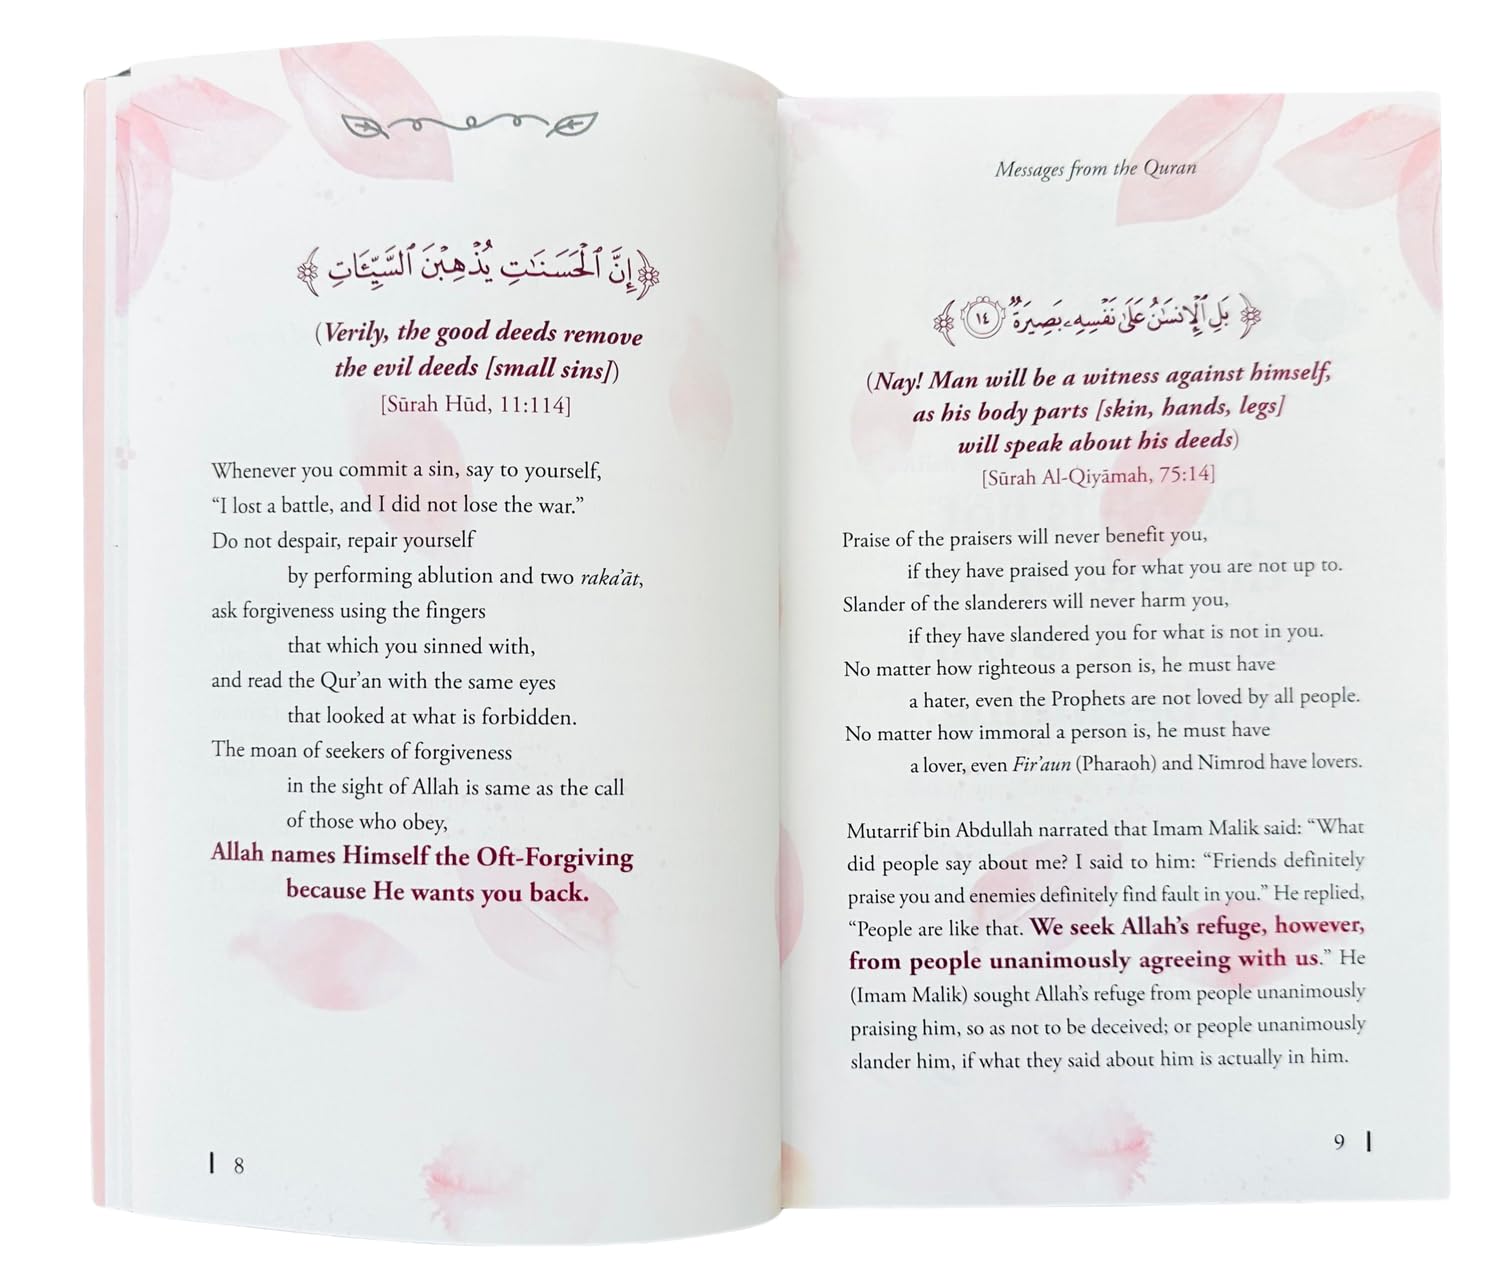 ﴿إِنَّ ٱلْحَسَنَـٰتِ يُذْهِبْنَ ٱلسَّيِّـَٔاتِ﴾
(Verily, the good deeds remove
the evil deeds [small sins])
[Sūrah Hūd, 11:114]
Whenever you commit a sin, say to yourself,
“I lost a battle, and I did not lose the war.”
Do not despair, repair yourself
by performing ablution and two raka’āt,
ask forgiveness using the fingers
that which you sinned with,
and read the Qur’an with the same eyes
that looked at what is forbidden.
The moan of seekers of forgiveness
in the sight of Allah is same as the call
of those who obey,
Allah names Himself the Oft-Forgiving
because He wants you back.
8
Messages from the Quran
﴿بَلِ ٱلْإِنسَـٰنُ عَلَىٰ نَفْسِهِۦ بَصِيرَةٌ ١٤﴾
(Nay! Man will be a witness against himself,
as his body parts [skin, hands, legs]
will speak about his deeds)
[Sūrah Al-Qiyāmah, 75:14]
Praise of the praisers will never benefit you,
if they have praised you for what you are not up to.
Slander of the slanderers will never harm you,
if they have slandered you for what is not in you.
No matter how righteous a person is, he must have
a hater, even the Prophets are not loved by all people.
No matter how immoral a person is, he must have
a lover, even Fir’aun (Pharaoh) and Nimrod have lovers.
Mutarrif bin Abdullah narrated that Imam Malik said: “What
did people say about me? I said to him: “Friends definitely
praise you and enemies definitely find fault in you.” He replied,
“People are like that. We seek Allah’s refuge, however,
from people unanimously agreeing with us.” He
(Imam Malik) sought Allah’s refuge from people unanimously
praising him, so as not to be deceived; or people unanimously
slander him, if what they said about him is actually in him.
9